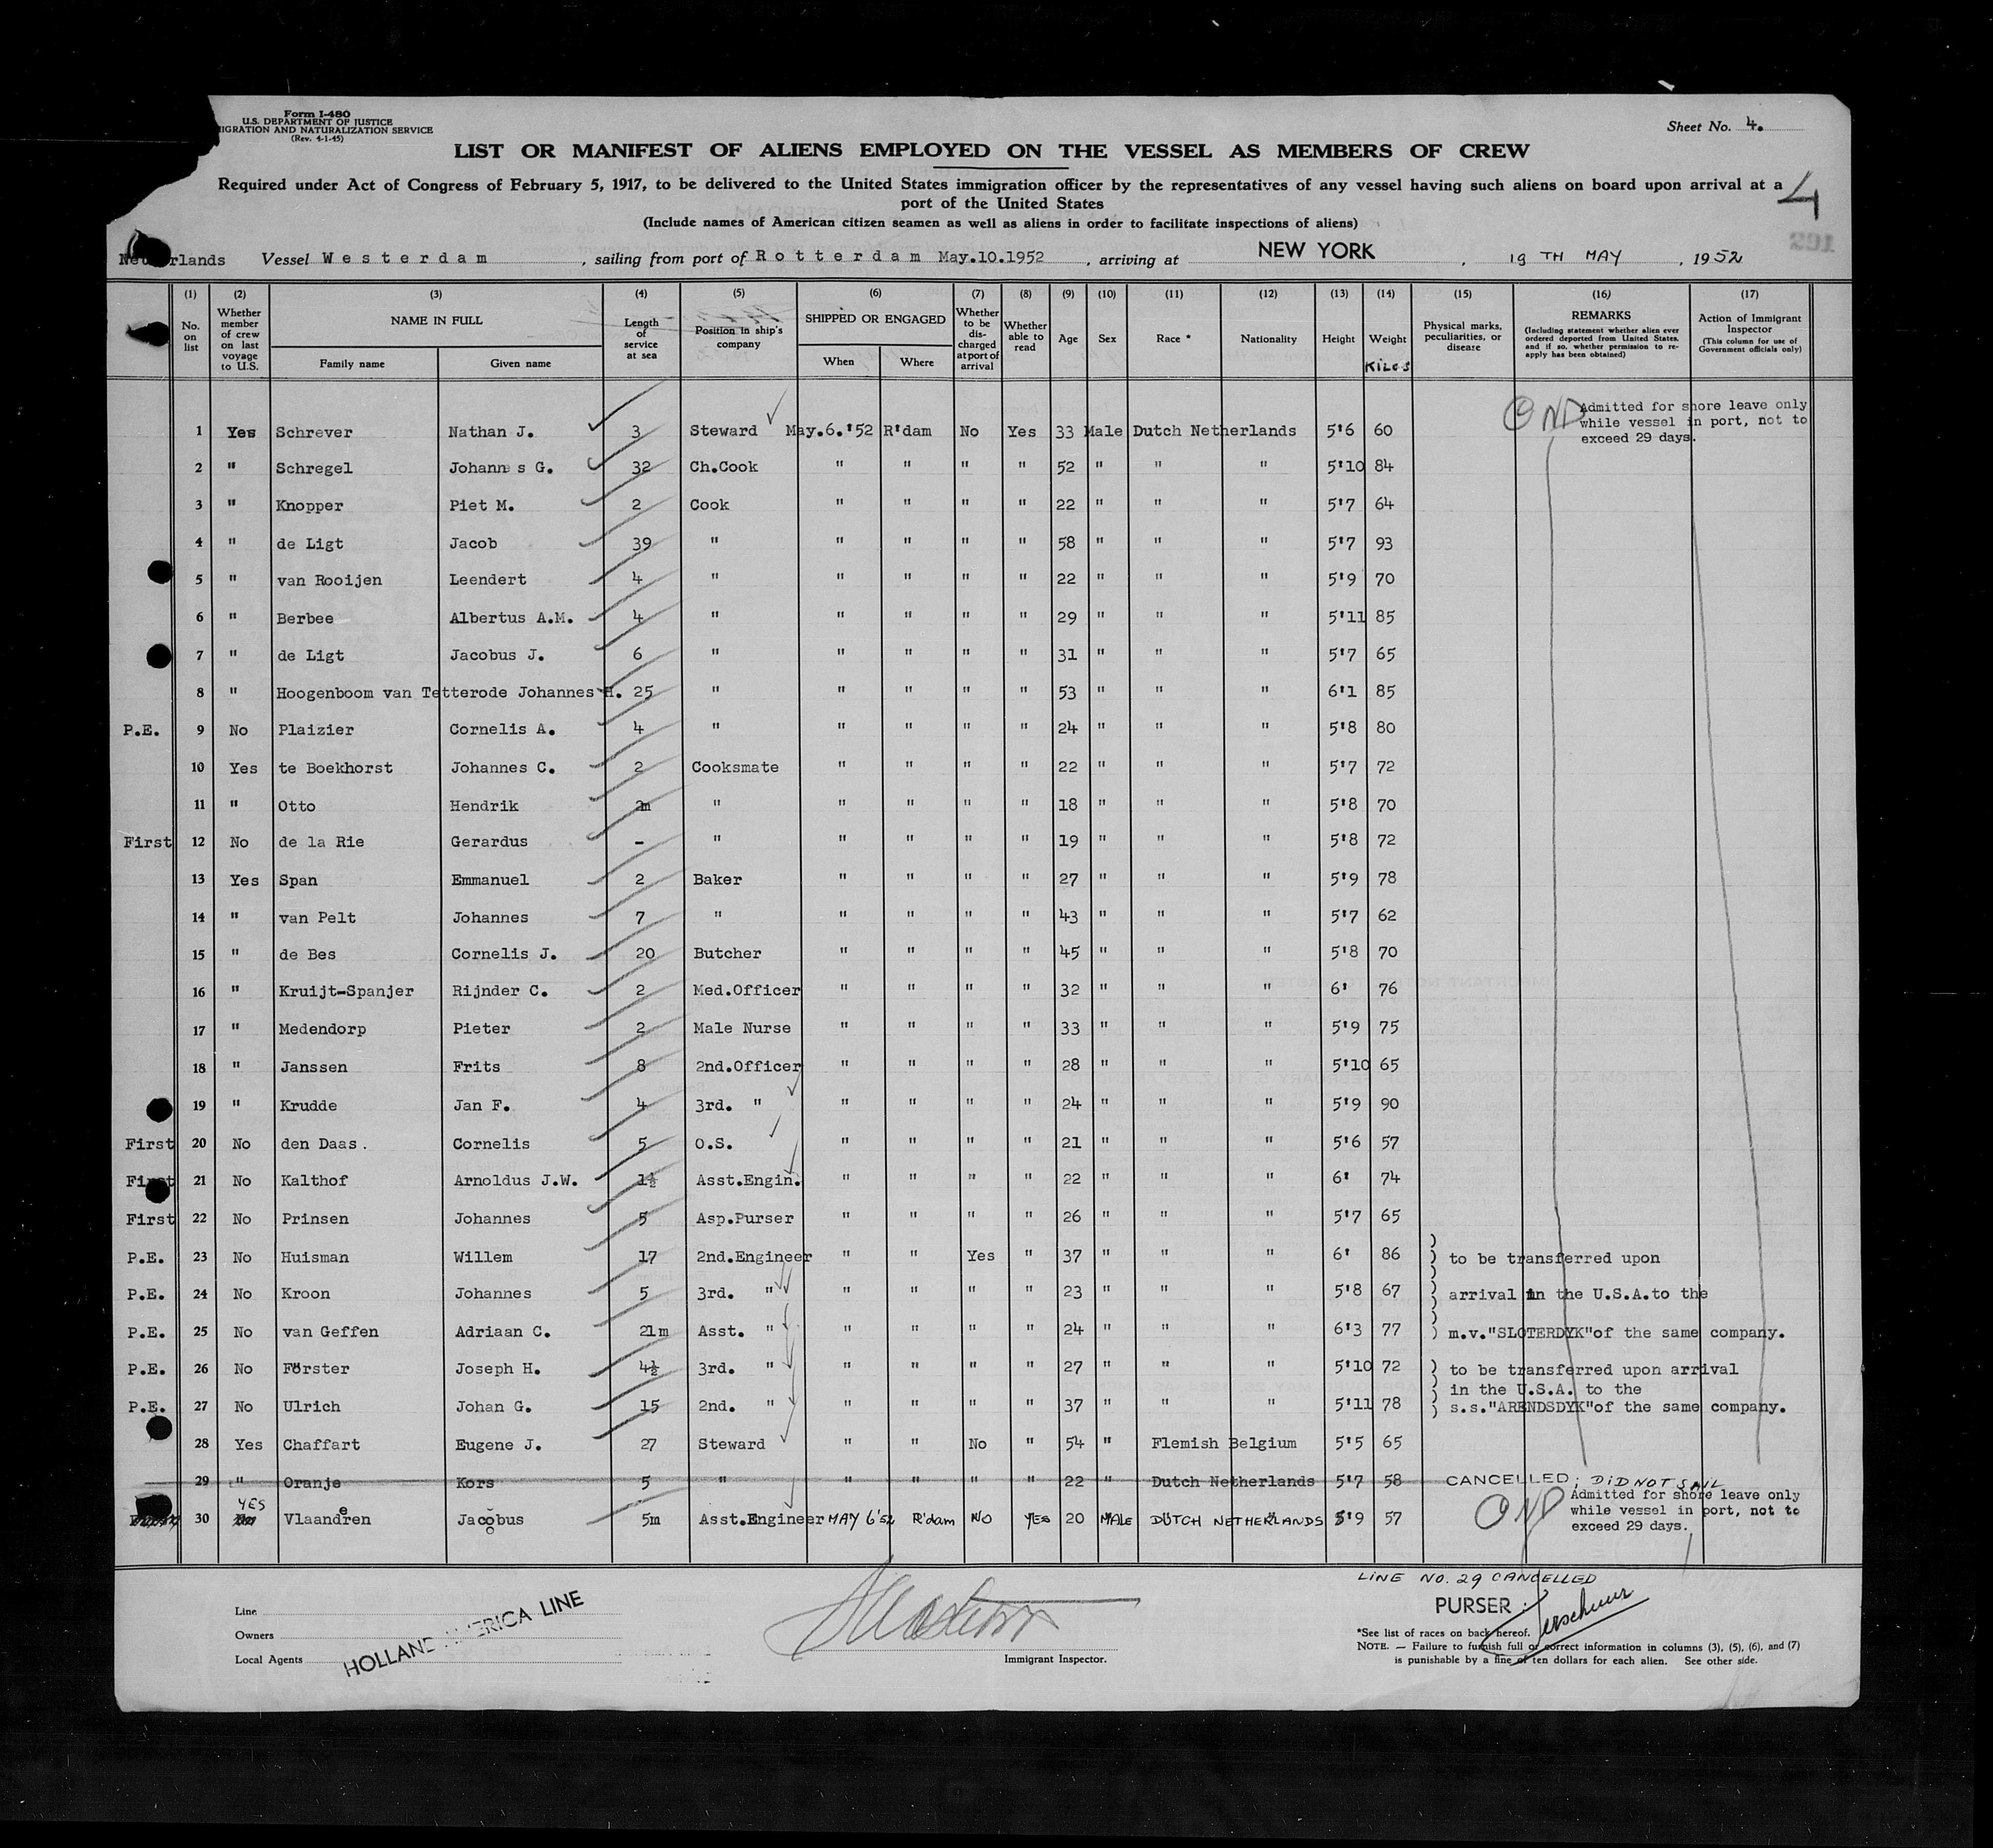 Form I-480
U.S. DEPARTMENT OF JUSTICE
IGRATION AND NATURALIZATION SERVICE
(Rev. 4-1-45)
Sheet No. 4.
LIST OR MANIFEST OF ALIENS EMPLOYED ON THE VESSEL AS MEMBERS OF CREW
4
Required under Act of Congress of February 5, 1917, to be delivered to the United States immigration officer by the representatives of any vessel having such aliens on board upon arrival at a
port of the United States
(Include names of American citizen seamen as well as aliens in order to facilitate inspections of aliens)
Netherlands Vessel Westerdam, sailing from port of Rotterdam May.10.1952, arriving at NEW YORK, 19TH MAY, 1952
(1) (2) (3) (4) (5) (6) (7) (8) (9) (10) (11) (12) (13) (14) (15) (16) (17)
No. on list
Whether member of crew on last voyage to U.S.
NAME IN FULL
Family name Given name
Length of service at sea
Position in ship's company
SHIPPED OR ENGAGED
When Where
Whether to be discharged at port of arrival
Whether able to read
Age Sex Race * Nationality Height Weight KILOS
Physical marks, peculiarities, or disease
REMARKS
(Including statement whether alien ever ordered deported from United States, and if so, whether permission to re-apply has been obtained)
Action of Immigrant Inspector
(This column for use of Government officials only)
1 Yes Schrever Nathan J. 3 Steward May.6.'52 R'dam No Yes 33 Male Dutch Netherlands 5'6 60 Admitted for shore leave only while vessel in port, not to exceed 29 days.
2 " Schregel Johannes G. 32 Ch.Cook " " " " 52 " " " 5'10 84
3 " Knopper Piet M. 2 Cook " " " " 22 " " " 5'7 64
4 " de Ligt Jacob 39 " " " " " 58 " " " 5'7 93
5 " van Rooijen Leendert 4 " " " " " 22 " " " 5'9 70
6 " Berbee Albertus A.M. 4 " " " " " 29 " " " 5'11 85
7 " de Ligt Jacobus J. 6 " " " " " 31 " " " 5'7 65
8 " Hoogenboom van Tetterode Johannes H. 25 " " " " " 53 " " " 6'1 85
P.E. 9 No Plaizier Cornelis A. 4 " " " " " 24 " " " 5'8 80
10 Yes te Boekhorst Johannes C. 2 Cooksmate " " " " 22 " " " 5'7 72
11 " Otto Hendrik 2m " " " " " 18 " " " 5'8 70
First 12 No de la Rie Gerardus - " " " " " 19 " " " 5'8 72
13 Yes Span Emmanuel 2 Baker " " " " 27 " " " 5'9 78
14 " van Pelt Johannes 7 " " " " " 43 " " " 5'7 62
15 " de Bes Cornelis J. 20 Butcher " " " " 45 " " " 5'8 70
16 " Kruijt-Spanjer Rijnder C. 2 Med.Officer " " " " 32 " " " 6' 76
17 " Medendorp Pieter 2 Male Nurse " " " " 33 " " " 5'9 75
18 " Janssen Frits 8 2nd.Officer " " " " 28 " " " 5'10 65
19 " Krudde Jan F. 4 3rd. " " " " " 24 " " " 5'9 90
First 20 No den Daas. Cornelis 5 O.S. " " " " 21 " " " 5'6 57
First 21 No Kalthof Arnoldus J.W. 1½ Asst.Engin. " " " " 22 " " " 6' 74
First 22 No Prinsen Johannes 5 Asp.Purser " " " " 26 " " " 5'7 65
P.E. 23 No Huisman Willem 17 2nd.Engineer " " Yes " 37 " " " 6' 86 ) to be transferred upon
P.E. 24 No Kroon Johannes 5 3rd. " " " " " 23 " " " 5'8 67 ) arrival in the U.S.A.to the
P.E. 25 No van Geffen Adriaan C. 21m Asst. " " " " " 24 " " " 6'3 77 ) m.v."SLOTERDYK"of the same company.
P.E. 26 No Förster Joseph H. 4½ 3rd. " " " " " 27 " " " 5'10 72 ) to be transferred upon arrival
in the U.S.A. to the
P.E. 27 No Ulrich Johan G. 15 2nd. " " " " " 37 " " " 5'11 78 ) s.s."ARENDSDYK"of the same company.
28 Yes Chaffart Eugene J. 27 Steward " " No " 54 " Flemish Belgium 5'5 65
29 " Oranje Kors 5 " " " " " 22 " Dutch Netherlands 5'7 58 CANCELLED; DID NOT SAIL
30 YES Vlaanderen Jacobus 5m Asst.Engineer MAY 6'52 R'dam NO YES 20 MALE DUTCH NETHERLANDS 5'9 57 Admitted for shore leave only while vessel in port, not to exceed 29 days.
LINE NO. 29 CANCELLED
Line
Owners
Local Agents
HOLLAND AMERICA LINE
Immigrant Inspector.
PURSER: Verschuur
*See list of races on back hereof.
NOTE. — Failure to furnish full or correct information in columns (3), (5), (6), and (7)
is punishable by a fine of ten dollars for each alien. See other side.